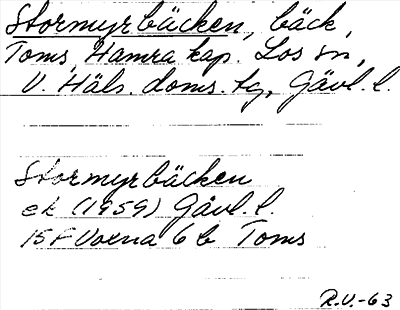 Stormyrbäcken, bäck,
Toms, Hamra kap. Los sn,
V. Häls. doms. tg, Gävl. l.
Stormyrbäcken
ek (1959) Gävl. l.
15F Voxna 6 b Toms
R.V.-63